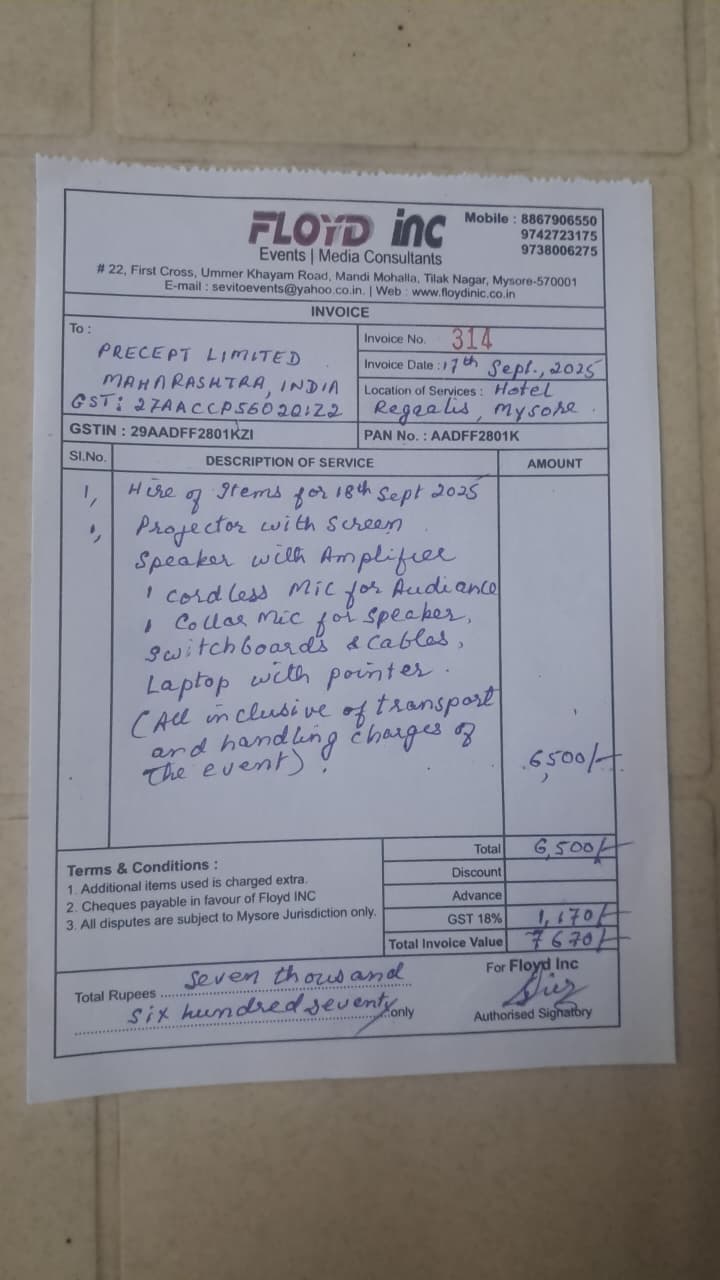 FLOYD inc
Events | Media Consultants
Mobile : 8867906550
9742723175
9738006275
# 22, First Cross, Ummer Khayam Road, Mandi Mohalla, Tilak Nagar, Mysore-570001
E-mail : sevitoevents@yahoo.co.in. | Web : www.floydinic.co.in
INVOICE
To :
PRECEPT LIMITED
MAHARASHTRA, INDIA
GST: 27AACCP5602Q1Z2
Invoice No. 314
Invoice Date : 17th Sept., 2025
Location of Services : Hotel
Regaalis, Mysore.
GSTIN : 29AADFF2801KZI
PAN No. : AADFF2801K
Sl.No. DESCRIPTION OF SERVICE AMOUNT
1, Hire of Items for 18th Sept 2025
Projector with Screen
Speaker with Amplifier
1 cordless Mic for Audiance
1 Collar Mic for Speaker,
Switchboards & Cables,
Laptop with pointer.
(All inclusive of transport
and handling charges of
the event). 6,500/-
Total 6,500/-
Discount
Advance
GST 18% 1,170/-
Total Invoice Value 7670/-
Terms & Conditions :
1. Additional items used is charged extra.
2. Cheques payable in favour of Floyd INC
3. All disputes are subject to Mysore Jurisdiction only.
Total Rupees seven thousand
six hundred seventy only
For Floyd Inc
Authorised Signatory